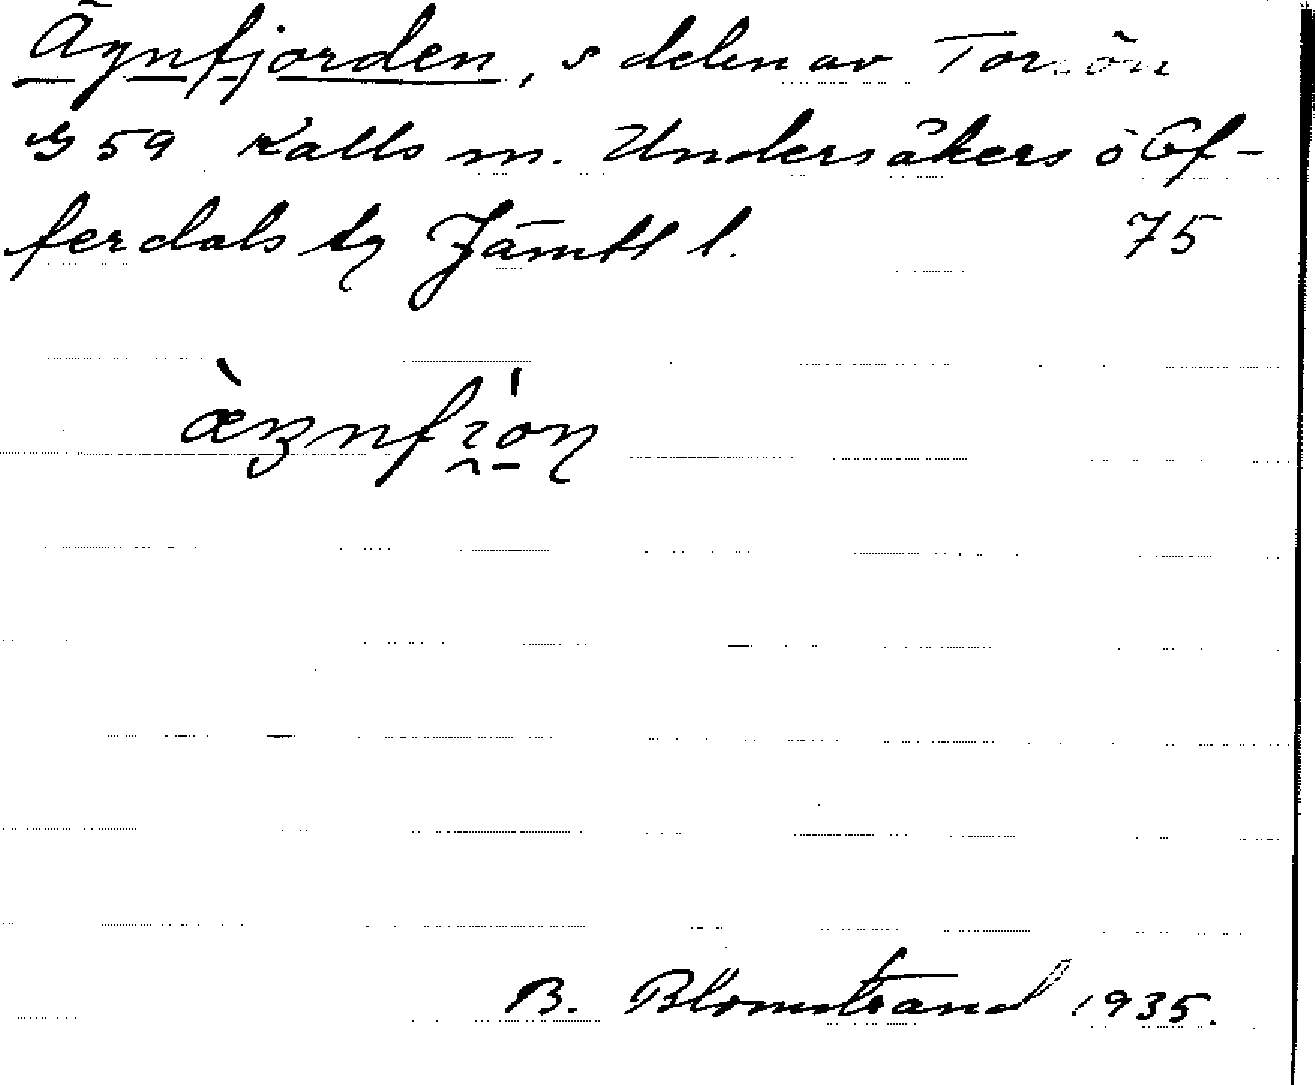 Äynfjorden, s delen av Torrön
G 59 Kalls sn. Undersåkers o Of-
ferdals tg Jämtl l. 75
æynfi̯on
B. Blomstrand 1935.